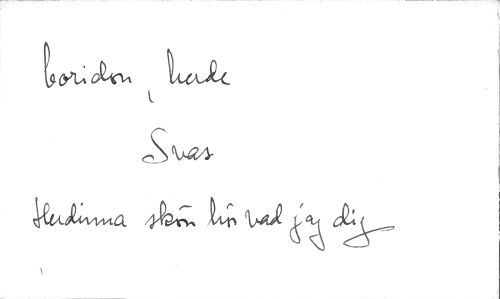 Coridon, herde
Svar
Herdinna skön hör vad jag dig